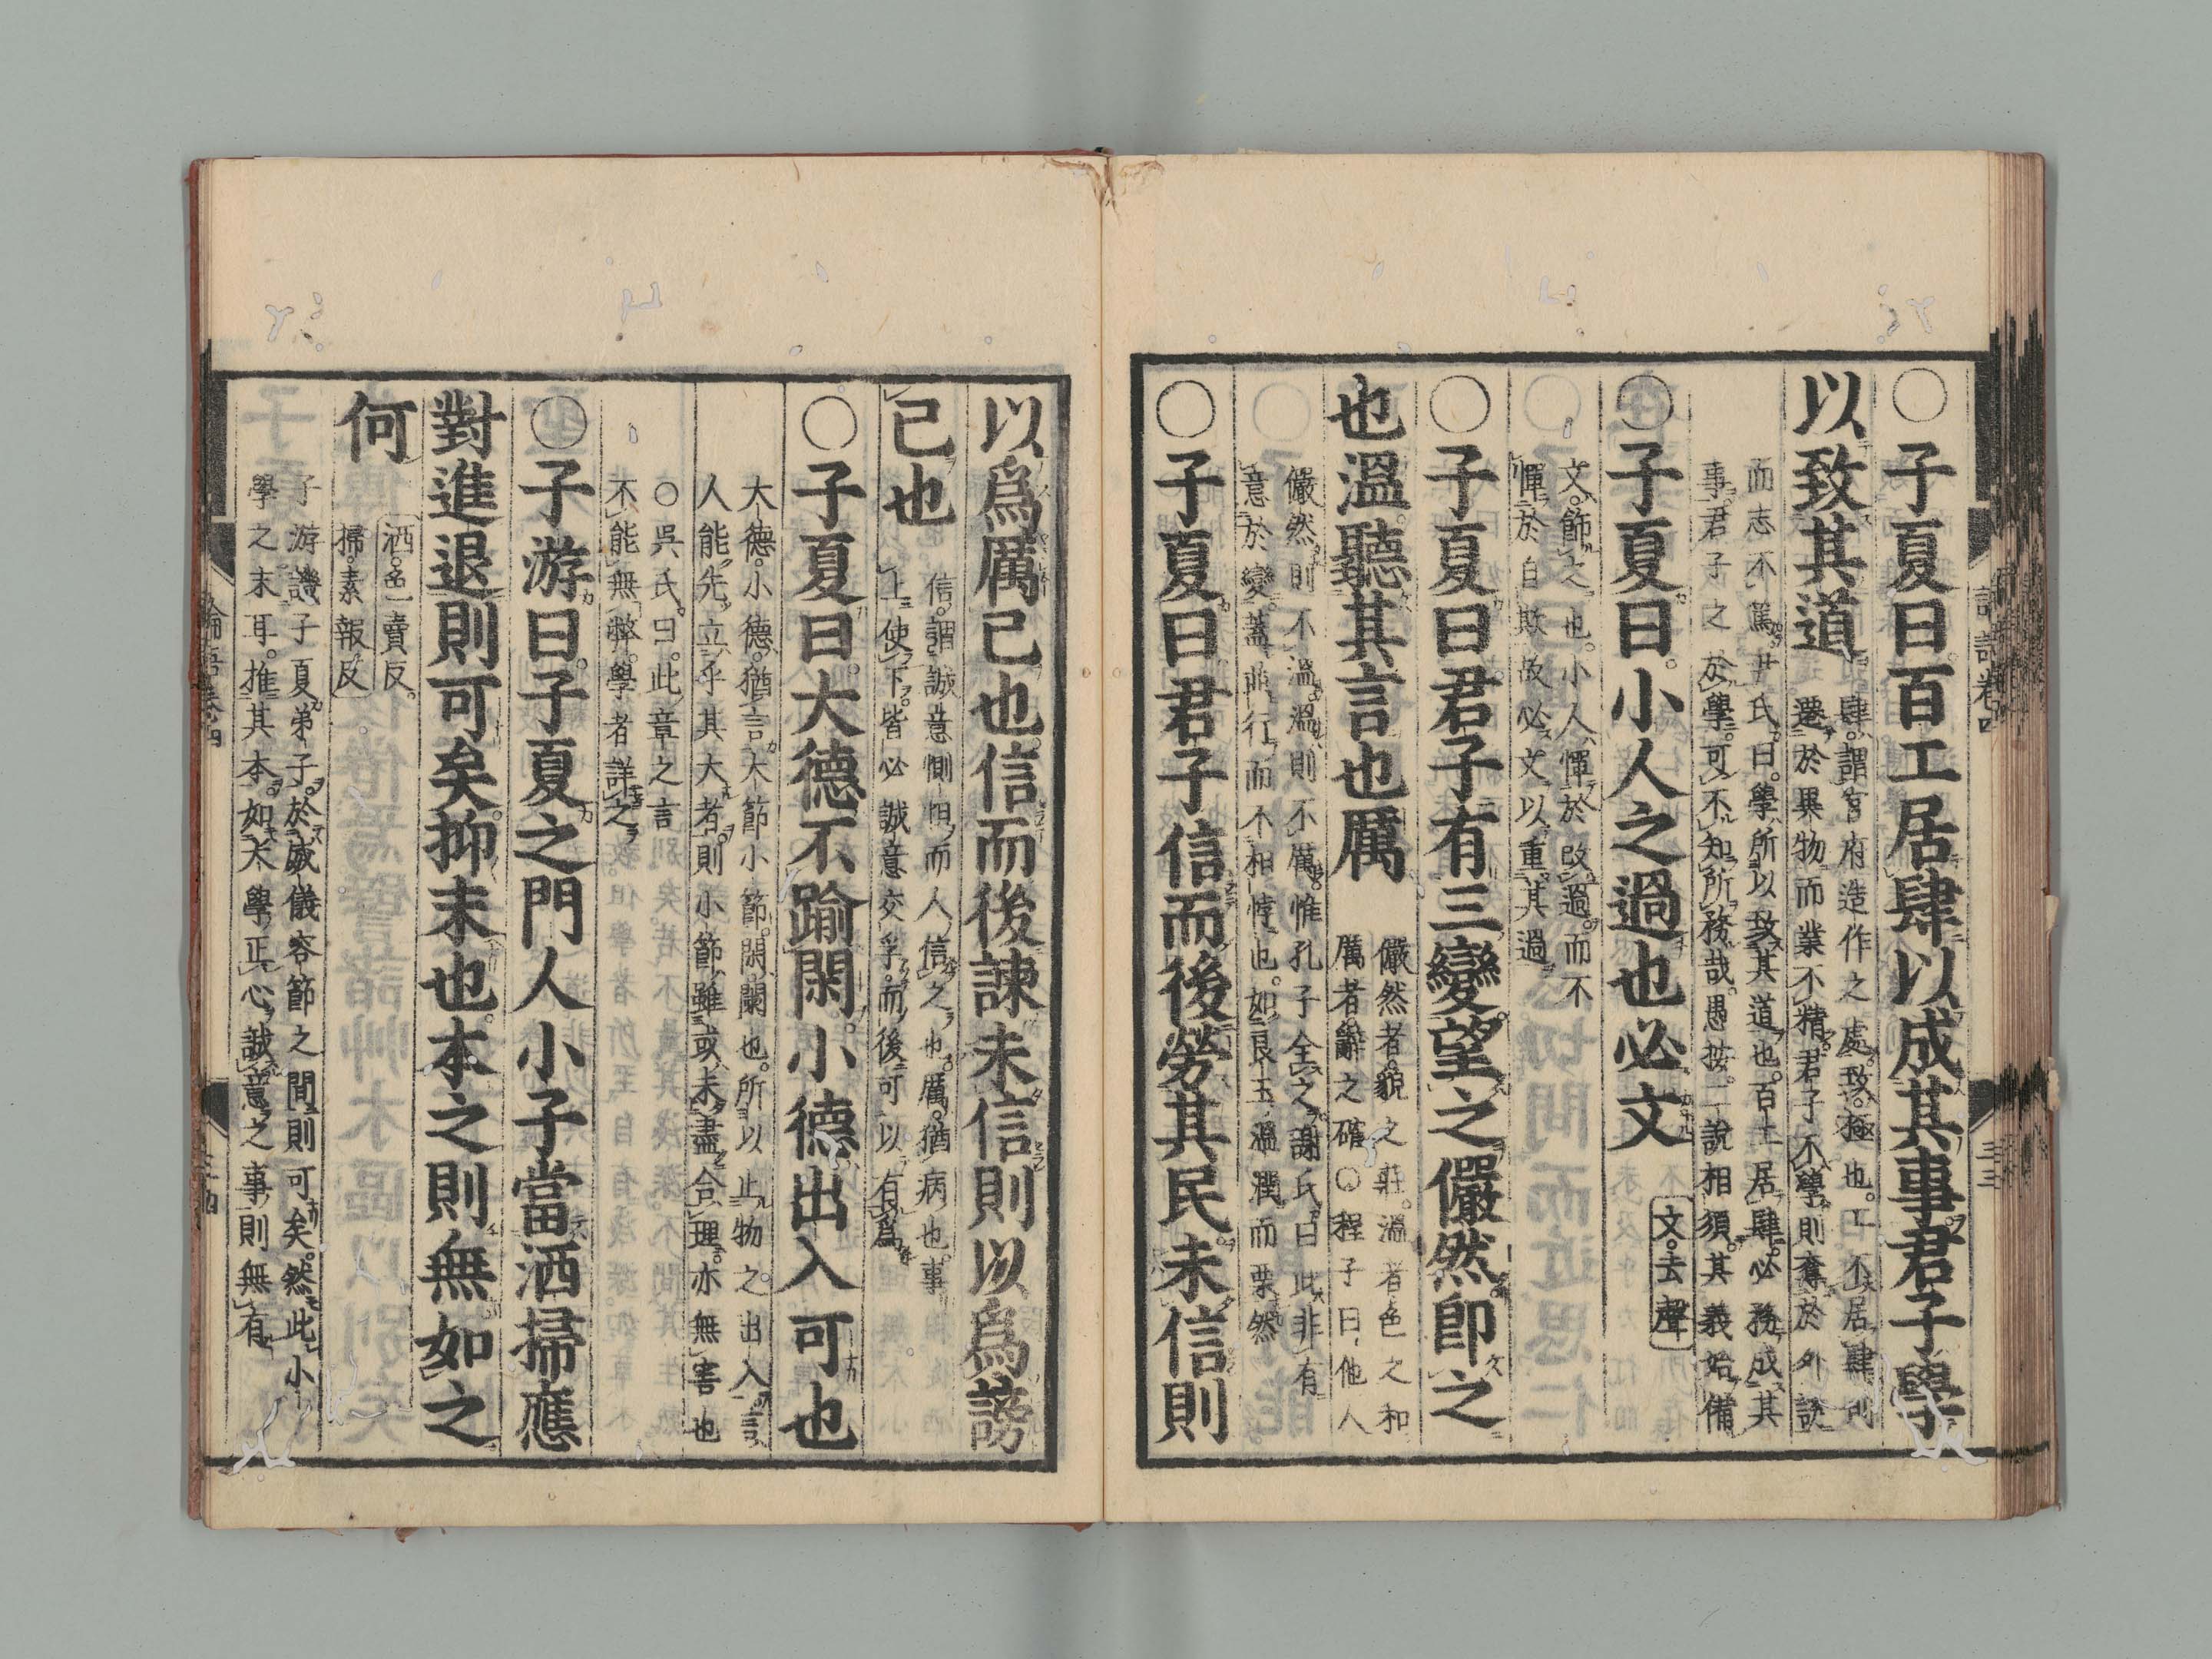 ○子夏曰百工居肆以成其事君子學
以致其道
肆。謂官府造作之處。致。極也。工不居肆則
遷於異物而業不精。君子不學。則奪於外誘
而志不篤。尹氏。曰。學所以致其道也。百工居肆。必務成其
事。君子之於學。可不知所務哉。愚按。二說相須。其義始備
○子夏曰。小人之過也必文
文。去聲
文。飾之也。小人憚於改過。而不
憚於自欺。故必文以重其過
○子夏曰君子有三變。望之儼然。卽之
也溫。聽其言也厲
儼然者。貌之莊。溫者色之和
厲者。辭之確○程子曰他人
儼然則不溫。溫則不厲。惟孔子全之。謝氏。曰此非有
意於變。蓋並行而不相悖也。如良玉溫潤而栗然
○子夏曰君子信而後勞其民。未信則
以爲厲己也。信而後諫未信則以爲謗
己也
信。謂誠意惻怛而人信之也。厲。猶病也。事
上使下。皆必誠意交孚。而後可以有爲
○子夏曰。大德不踰閑。小德出入可也
大德。小德。猶言大節小節。閑闌也。所以止物之出入。言
人能先立乎其大者。則小節雖或未盡合理。亦無害也
○吳氏。曰。此章之言
不能無弊。學者詳之
○子游曰。子夏之門人小子當洒掃應
對進退則可矣。抑末也。本之則無。如之
何
洒。色賣反。
掃。素報反
子游譏子夏弟子。於威儀容節之間則可矣。然此小
學之末耳。推其本。如大學正心誠意之事則無有
論語卷四
三三